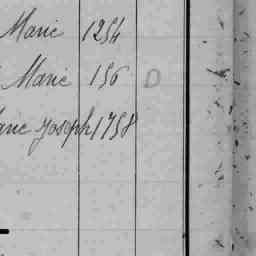 Marie 1254
Marie 156 D
Marie Joseph 1758